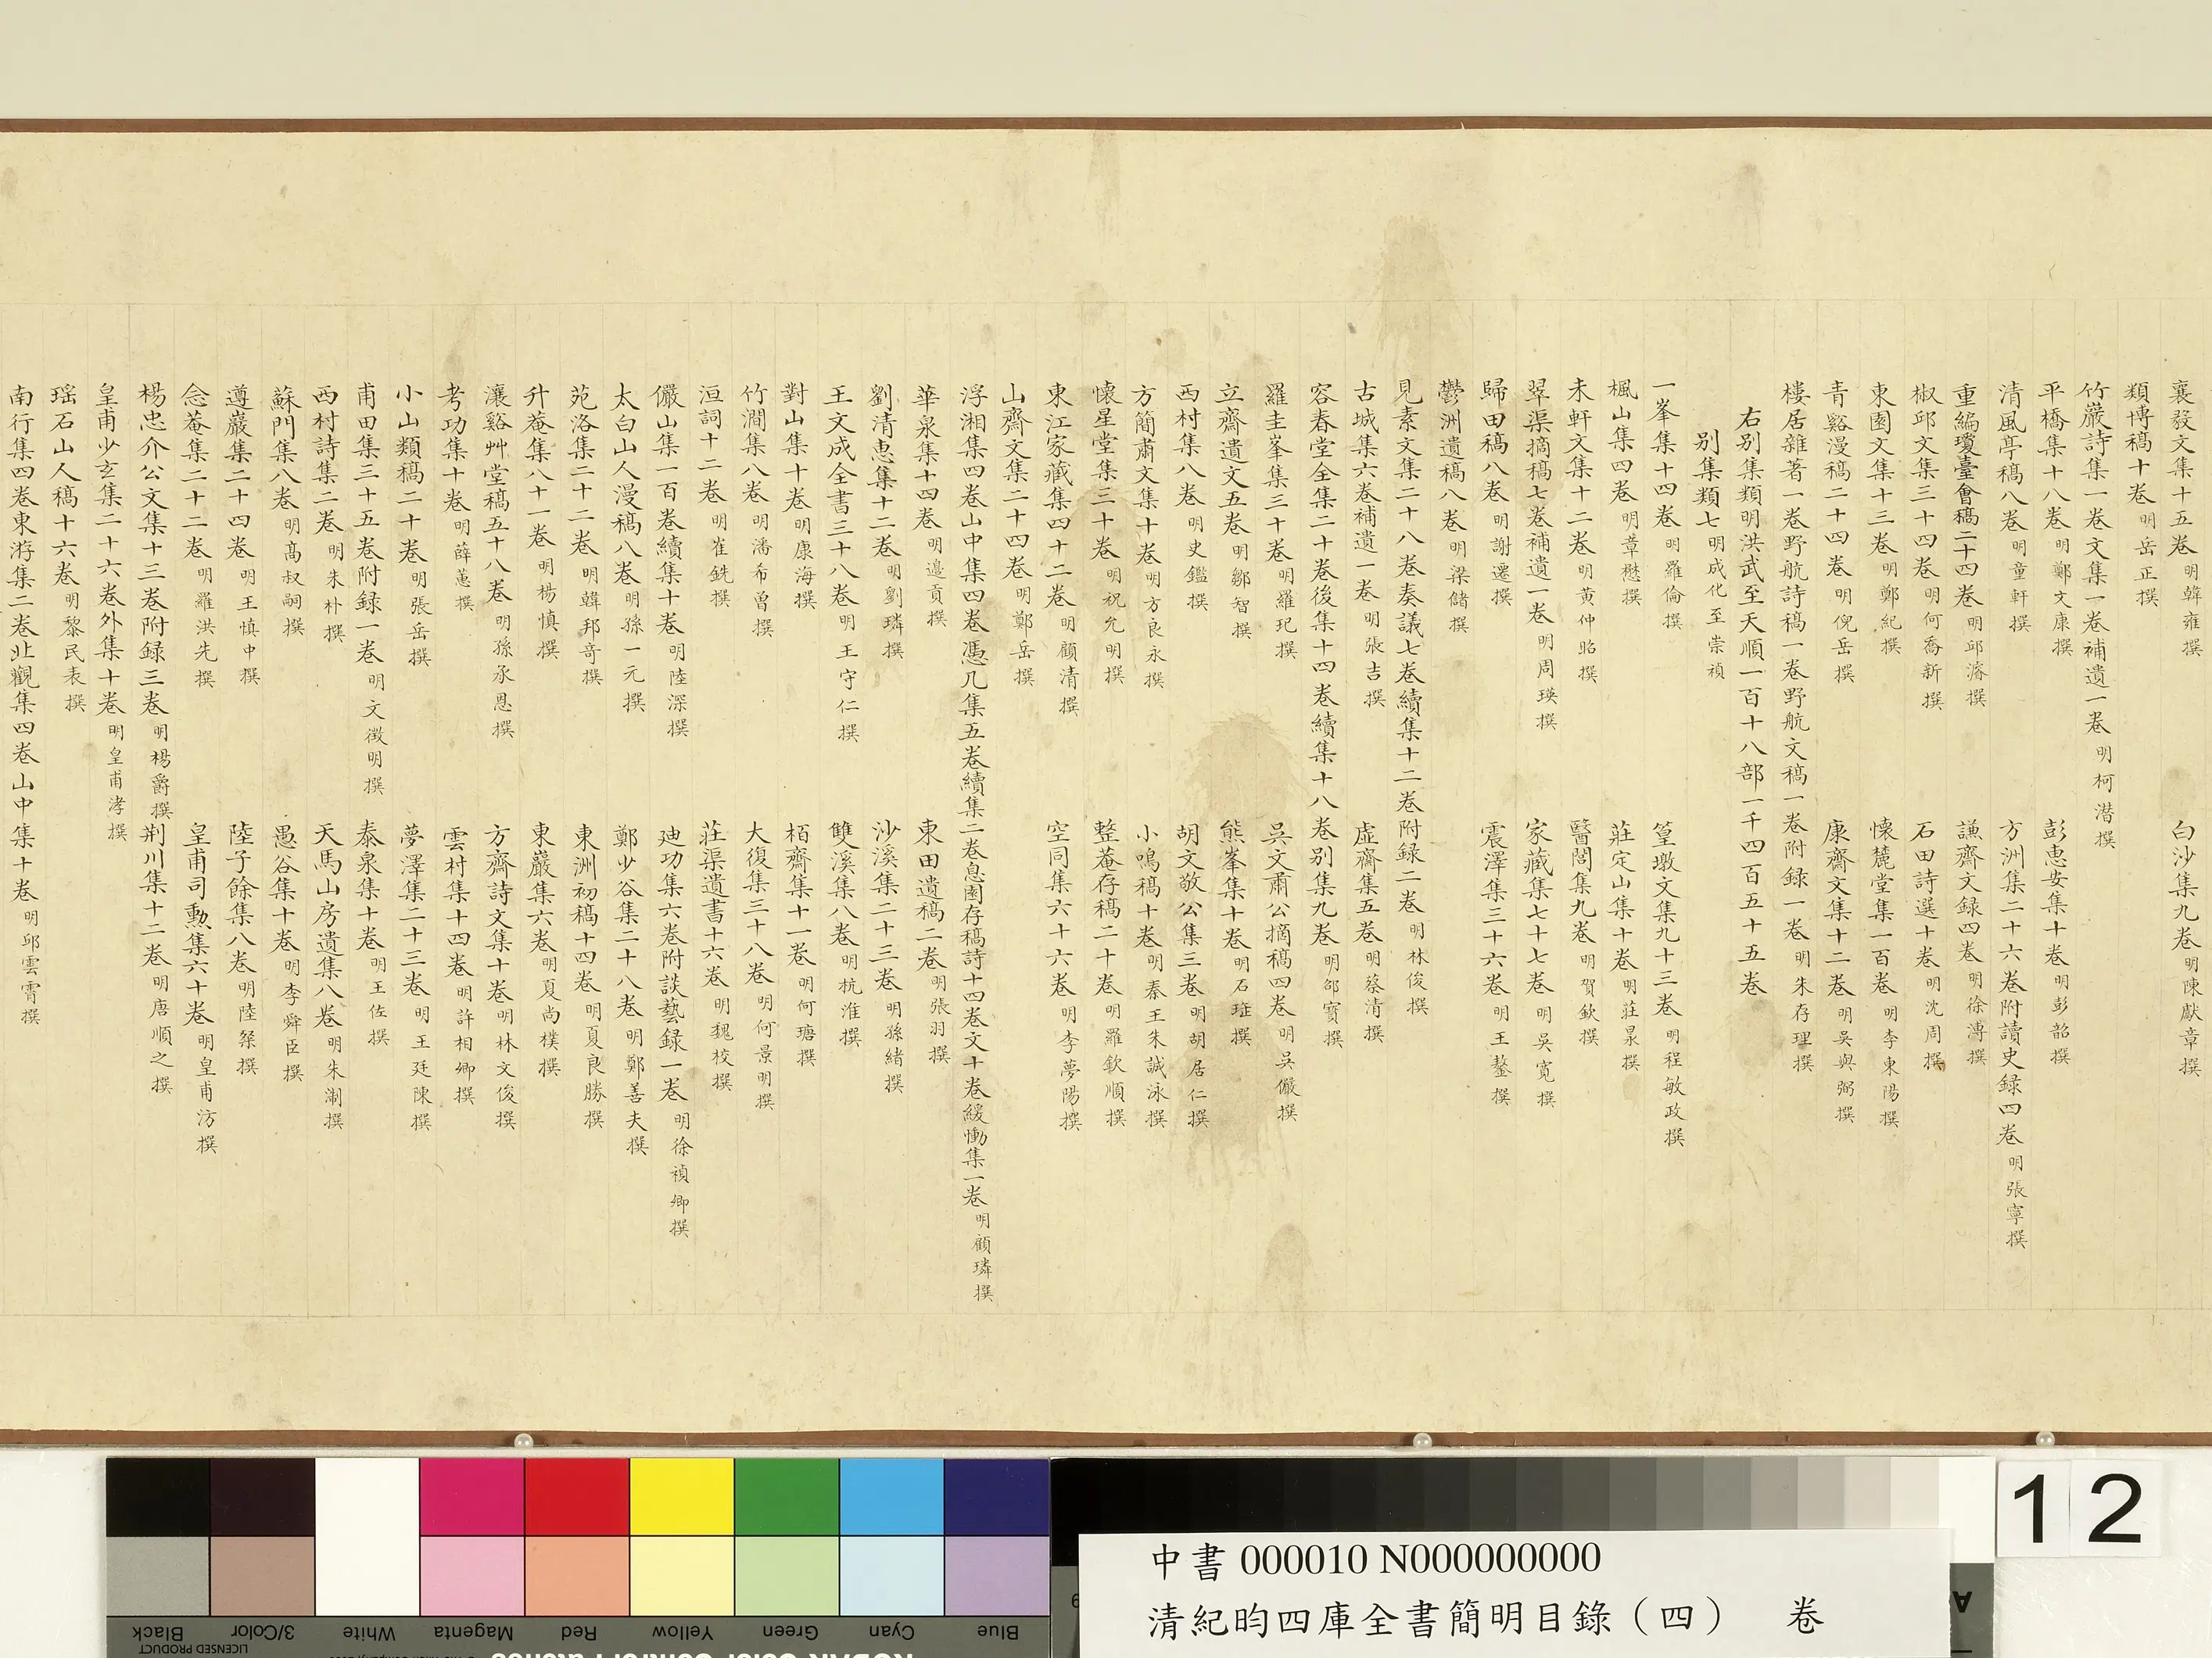 襄毅文集十五卷明韓雍撰 白沙集九卷明陳獻章撰
類博稿十卷明岳正撰
竹巖詩集一卷文集一卷補遺一卷明柯潛撰
平橋集十八卷明鄭文康撰 彭惠安集十卷明彭韶撰
清風亭稿八卷明童軒撰 方洲集二十六卷附讀史録四卷明張寧撰
重編瓊臺會稿二十四卷明邱濬撰 謙齋文録四卷明徐溥撰
椒邱文集三十四卷明何喬新撰 石田詩選十卷明沈周撰
東園文集十三卷明鄭紀撰 懷麓堂集一百卷明李東陽撰
青谿漫稿二十四卷明倪岳撰 康齋文集十二卷明吳與弼撰
樓居雜著一卷野航詩稿一卷野航文稿一卷附録一卷明朱存理撰
右別集類明洪武至天順一百十八部一千四百五十五卷
別集類七明成化至崇禎
一峯集十四卷明羅倫撰 篁墩文集九十三卷明程敏政撰
楓山集四卷明章懋撰 莊定山集十卷明莊㫤撰
未軒文集十二卷明黃仲昭撰 醫閭集九卷明賀欽撰
翠渠摘稿七卷補遺一卷明周瑛撰 家藏集七十七卷明吳寬撰
歸田稿八卷明謝遷撰 震澤集三十六卷明王鏊撰
鬱洲遺稿八卷明梁儲撰
見素文集二十八卷奏議七卷續集十二卷附録二卷明林俊撰
古城集六卷補遺一卷明張吉撰 虛齋集五卷明蔡清撰
容春堂全集二十卷後集十四卷續集十八卷別集九卷明邵寶撰
羅圭峯集三十卷明羅玘撰 吳文肅公摘稿四卷明吳儼撰
立齋遺文五卷明鄒智撰 熊峯集十卷明石珤撰
西村集八卷明史鑑撰 胡文敬公集三卷明胡居仁撰
方簡肅文集十卷明方良永撰 小鳴稿十卷明秦王朱誠泳撰
懷星堂集三十卷明祝允明撰 整菴存稿二十卷明羅欽順撰
東江家藏集四十二卷明顧清撰 空同集六十六卷明李夢陽撰
山齋文集二十四卷明鄭岳撰
浮湘集四卷山中集四卷憑几集五卷續集二卷息園存稿詩十四卷文十卷緩慟集一卷明顧璘撰
華泉集十四卷明邊貢撰 東田遺稿二卷明張羽撰
劉清惠集十二卷明劉璘撰 沙溪集二十三卷明孫緒撰
王文成全書三十八卷明王守仁撰 雙溪集八卷明杭淮撰
對山集十卷明康海撰 栢齋集十一卷明何瑭撰
竹澗集八卷明潘希曾撰 大復集三十八卷明何景明撰
洹詞十二卷明崔銑撰 莊渠遺書十六卷明魏校撰
儼山集一百卷續集十卷明陸深撰 廸功集六卷附談藝録一卷明徐禎卿撰
太白山人漫稿八卷明孫一元撰 鄭少谷集二十八卷明鄭善夫撰
苑洛集二十二卷明韓邦奇撰 東洲初稿十四卷明夏良勝撰
升菴集八十一卷明楊慎撰 東巖集六卷明夏尚樸撰
瀼谿艸堂稿五十八卷明孫承恩撰 方齋詩文集十卷明林文俊撰
考功集十卷明薛蕙撰 雲村集十四卷明許相卿撰
小山類稿二十卷明張岳撰 夢澤集二十三卷明王廷陳撰
甫田集三十五卷附録一卷明文徵明撰 泰泉集十卷明王佐撰
西村詩集二卷明朱朴撰 天馬山房遺集八卷明朱淛撰
蘇門集八卷明高叔嗣撰 愚谷集十卷明李舜臣撰
遵巖集二十四卷明王慎中撰 陸子餘集八卷明陸粲撰
念菴集二十二卷明羅洪先撰 皇甫司勳集六十卷明皇甫汸撰
楊忠介公文集十三卷附録三卷明楊爵撰 荆川集十二卷明唐順之撰
皇甫少玄集二十六卷外集十卷明皇甫涍撰
瑶石山人稿十六卷明黎民表撰
南行集四卷東游集二卷北觀集四卷山中集十卷明邱雲霄撰
12
中書000010 N000000000
清紀昀四庫全書簡明目錄（四） 卷
Black 3/Color White Magenta Red Yellow Green Cyan Blue
LICENSED PRODUCT